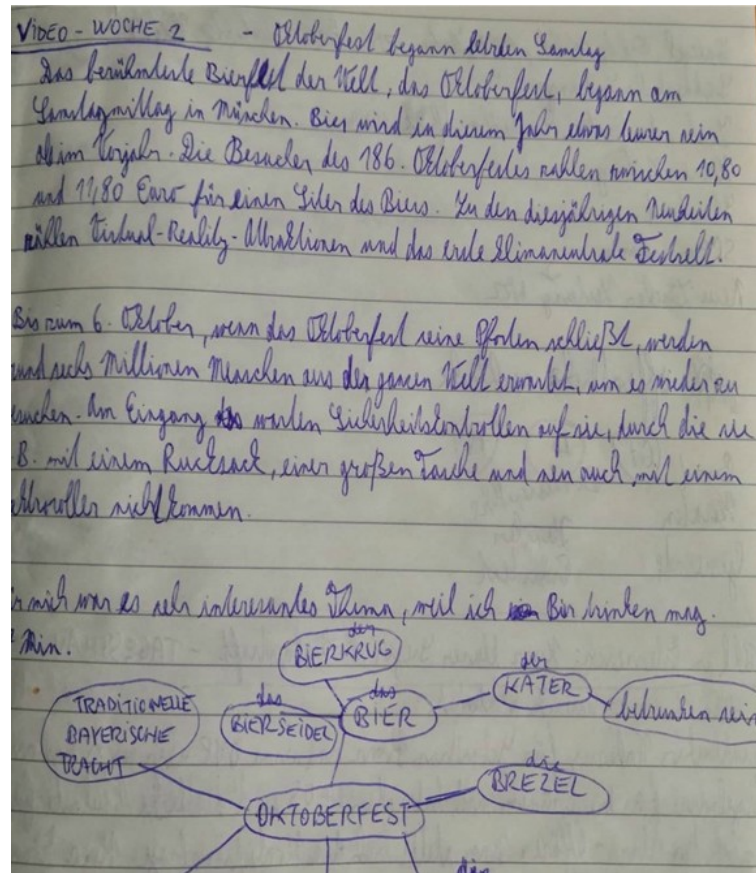 VIDEO - WOCHE 2 - Oktoberfest begann letzten Samstag
Das berühmteste Bierfest der Welt, das Oktoberfest, begann am
Samstagmittag in München. Bier wird in diesem Jahr etwas teurer sein
als im Vorjahr. Die Besucher des 186. Oktoberfestes zahlen zwischen 10,80
und 11,80 Euro für einen Liter des Biers. Zu den diesjährigen Neuheiten
zählen Virtual-Reality-Attraktionen und das erste klimaneutrale Festzelt.
Bis zum 6. Oktober, wenn das Oktoberfest seine Pforten schließt, werden
rund sechs Millionen Menschen aus der ganzen Welt erwartet, um es wieder zu
suchen. Am Eingang warten Sicherheitskontrollen auf sie, durch die sie
B. mit einem Rucksack, einer großen Tasche und neu auch mit einem
nicht kommen.
r mich war es sehr interessantes Thema, weil ich Bier trinken mag.
Min.
der
BIERKRUG
der
KATER
das
BIERSEIDEL
das
BIER
betrunken sein
TRADITIONELLE
BAYERISCHE
TRACHT
die
BREZEL
OKTOBERFEST